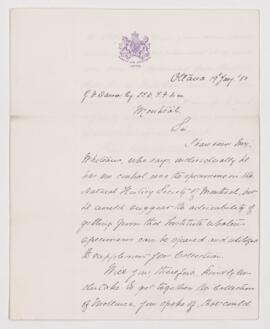 Ottawa 19 Jany '83
J. W. Dawson Esq LL.D. F.R.S. &c
Montreal
Sir
I have seen Mr.
Whiteaves, who says individually he
has no control over the specimens in the
Natural History Society of Montreal, but
he would suggest the advisability of
getting from that Institute whatever
specimens can be spared and utilized
to supplement your Collection.
Will you, therefore, kindly un-
dertake to get together the Collection
of Mollusca, you spoke of that could